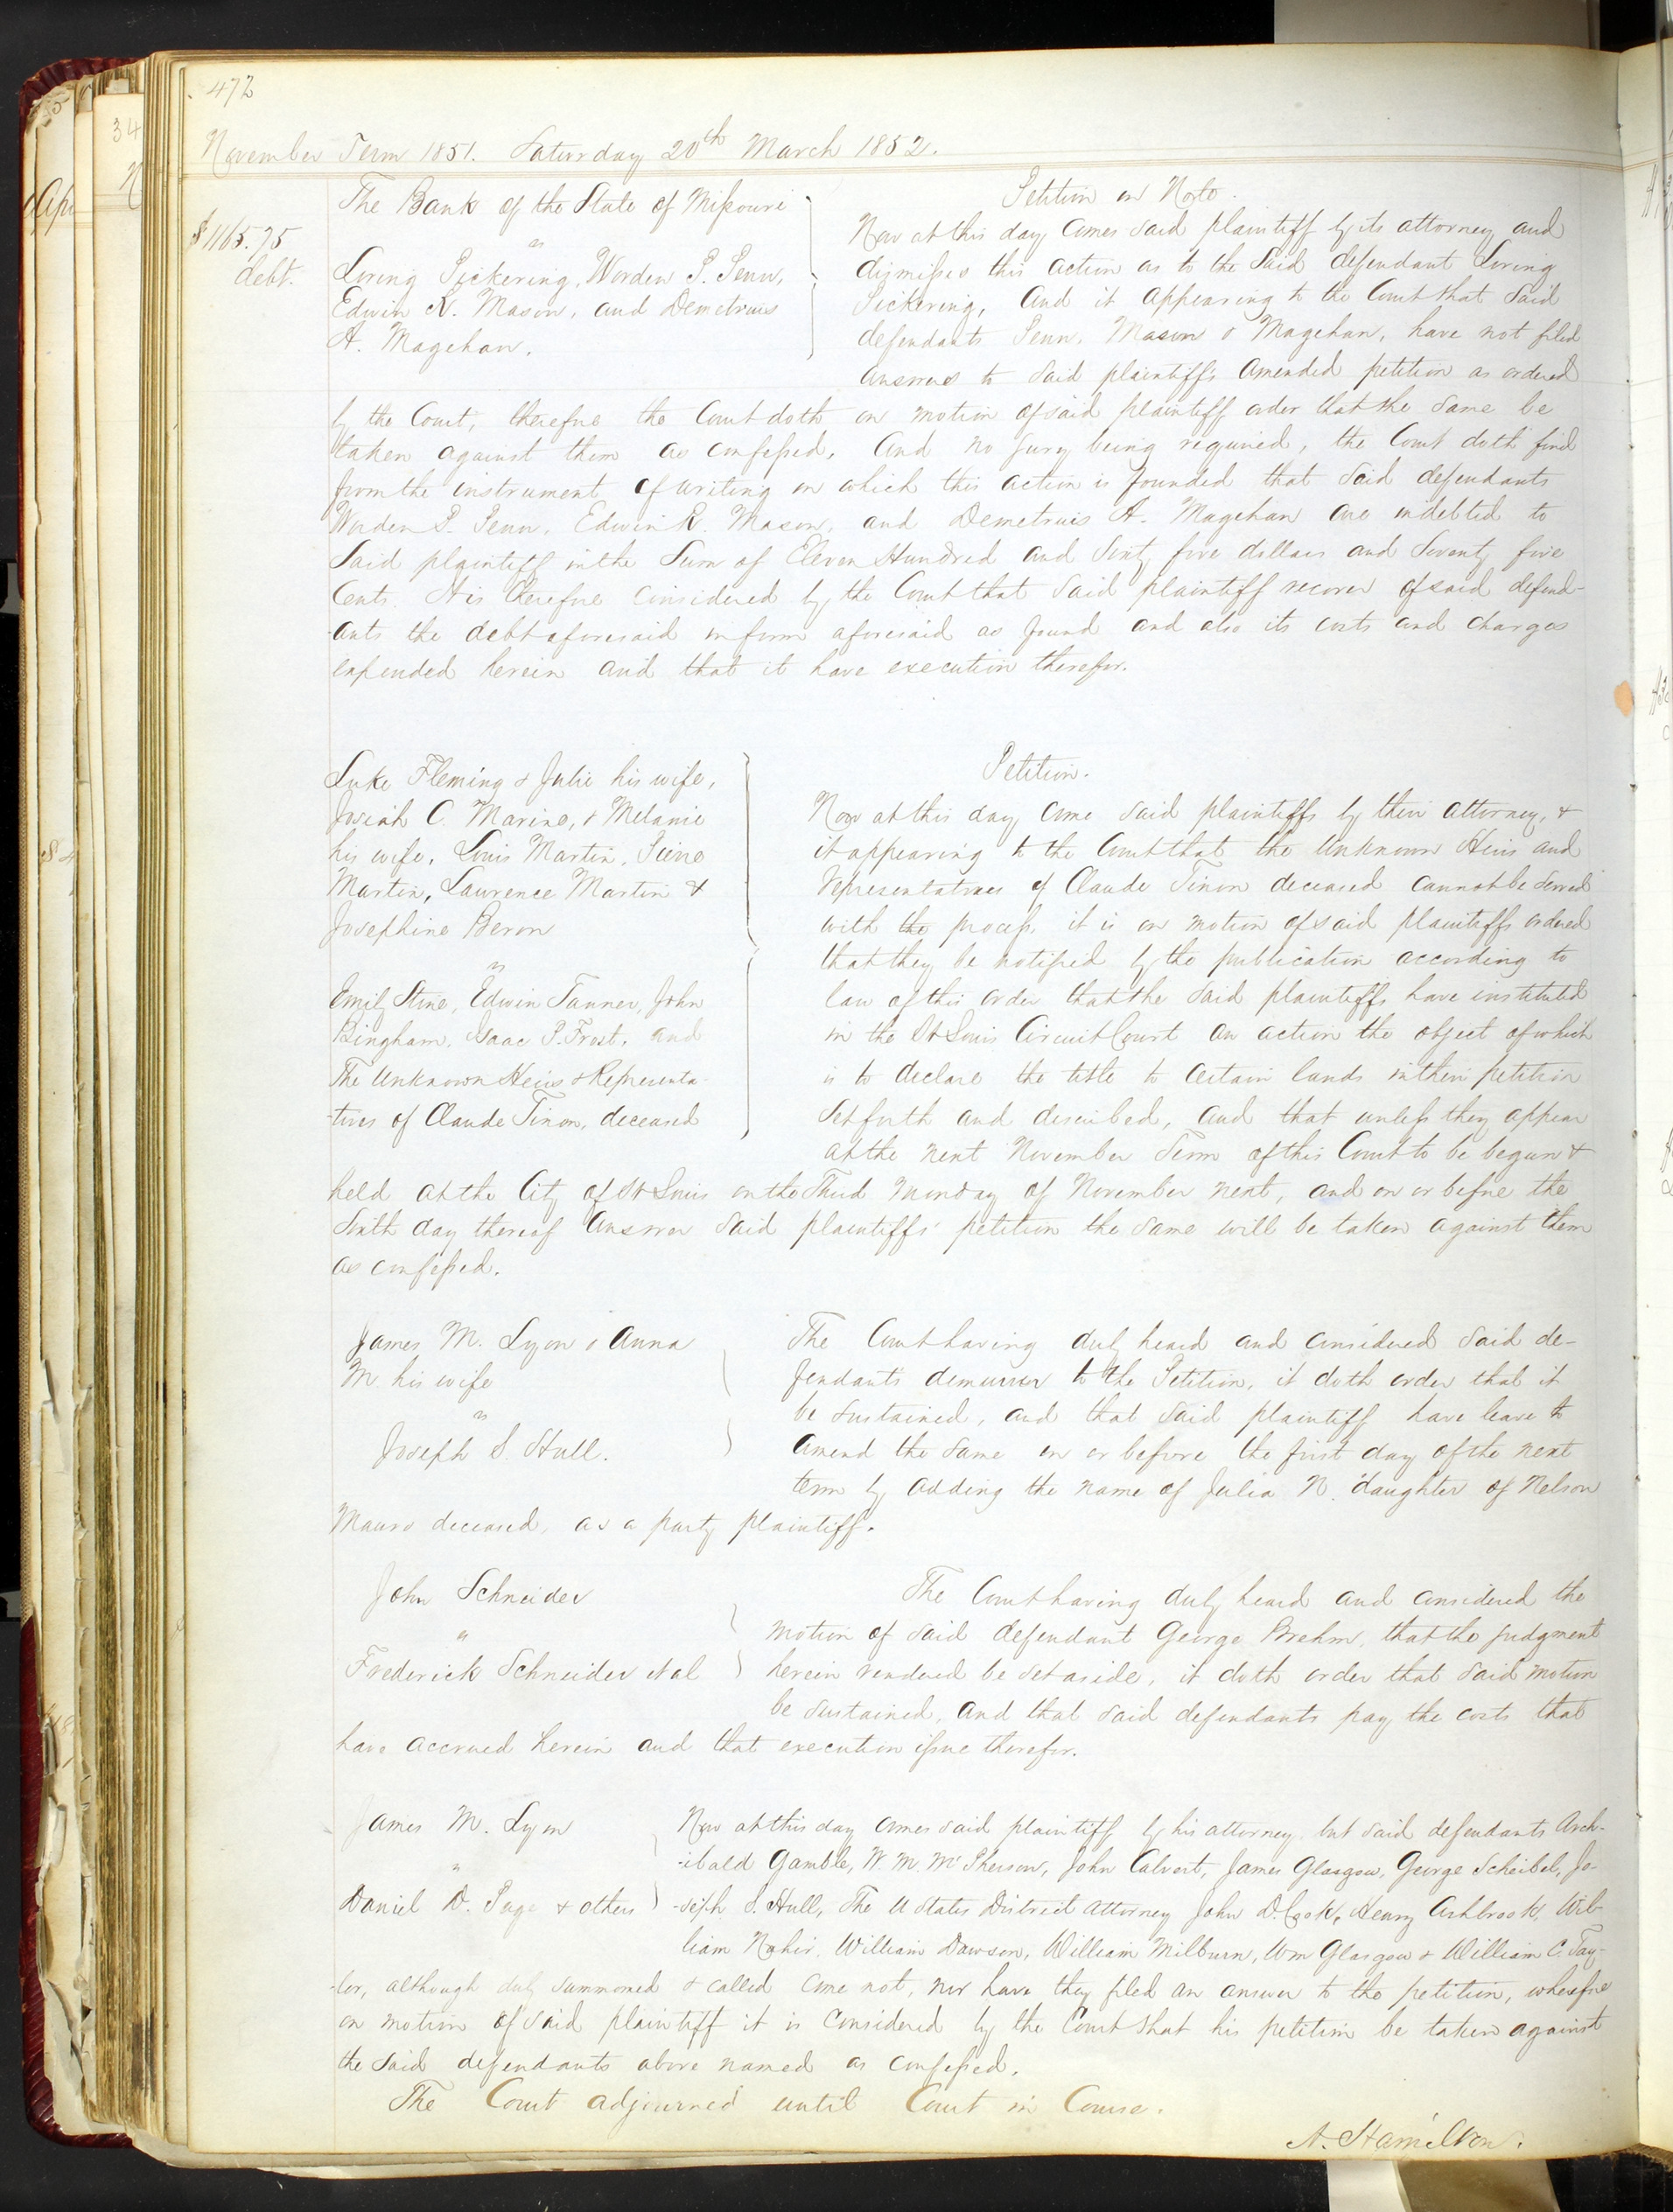 472
November Term 1851. Saturday 20th March 1852.
$1165.75
debt.
The Bank of the State of Missouri
vs
Loring Pickering, Worden P. Penn,
Edwin R. Mason, and Demetrius
A. Magehan.
Petition on Note.
Now at this day comes said plaintiff by its attorney and
dismisses this action as to the said defendant Loring
Pickering, and it appearing to the Court that said
defendants Penn, Mason & Magehan, have not filed
answers to said plaintiff's amended petition as ordered
by the Court, therefore the Court doth on motion of said plaintiff order that the same be
taken against them as confessed, and no jury being required, the Court doth find
from the instrument of writing on which this action is founded that said defendants
Worden P. Penn, Edwin R. Mason, and Demetrius A. Magehan are indebted to
said plaintiff in the sum of Eleven Hundred and Sixty five dollars and Seventy five
Cents. It is therefore considered by the Court that said plaintiff recover of said defend-
-ants the debt aforesaid in form aforesaid as found and also its costs and charges
expended herein and that it have execution therefor.
Luke Fleming & Julie his wife,
Josiah C. Marine, & Melanie
his wife, Louis Martin, Pierre
Martin, Lawrence Martin &
Josephine Beron
vs
Emily Stine, Edwin Tanner, John
Bingham, Isaac P. Frost, and
The Unknown Heirs & Representa-
-tives of Claude Tinon, deceased
Petition.
Now at this day come said plaintiffs by their attorney, &
it appearing to the Court that the Unknown Heirs and
representatives of Claude Tinon deceased cannot be served
with the process, it is on motion of said plaintiffs ordered
that they be notified by the publication according to
law of this order that the said plaintiffs have instituted
in the St Louis Circuit Court an action the object of which
is to declare the title to certain lands in their petition
set forth and described, and that unless they appear
at the next November Term of this Court to be begun &
held at the City of St Louis on the Third Monday of November next, and on or before the
sixth day thereof answer said plaintiffs' petition the same will be taken against them
as confessed.
James M. Lyon & Anna
M his wife
vs
Joseph S. Hull.
The Court having duly heard and considered said de-
fendants demurrer to the Petition, it doth order that it
be sustained, and that said plaintiff have leave to
amend the same on or before the first day of the next
term by adding the name of Julia N. daughter of Nelson
Mauro deceased, as a party plaintiff.
John Schneider
"
Frederick Schneider et al
The Court having duly heard and considered the
motion of said defendant George Brehm, that the judgment
herein rendered be set aside, it doth order that said motion
be sustained, and that said defendants pay the costs that
have accrued herein and that execution issue therefor.
James M. Lyon
"
Daniel D. Page & others
Now at this day comes said plaintiff by his attorney but said defendants Arch-
-ibald Gamble, W. M. McPherson, John Calvert, James Glasgow, George Scheibel, Jo-
-seph S. Hull, The U States District Attorney John D. Cook, Henry Ashbrook, Wil-
liam Nohir, William Dawson, William Milburn, Wm Glasgow & William C. Tay-
-lor, although duly summoned & called come not, nor have they filed an answer to the petition, wherefore
on motion of said plaintiff it is considered by the Court that his petition be taken against
the said defendants above named as confessed.
The Court adjourned until Court in Course.
A. Hamilton.